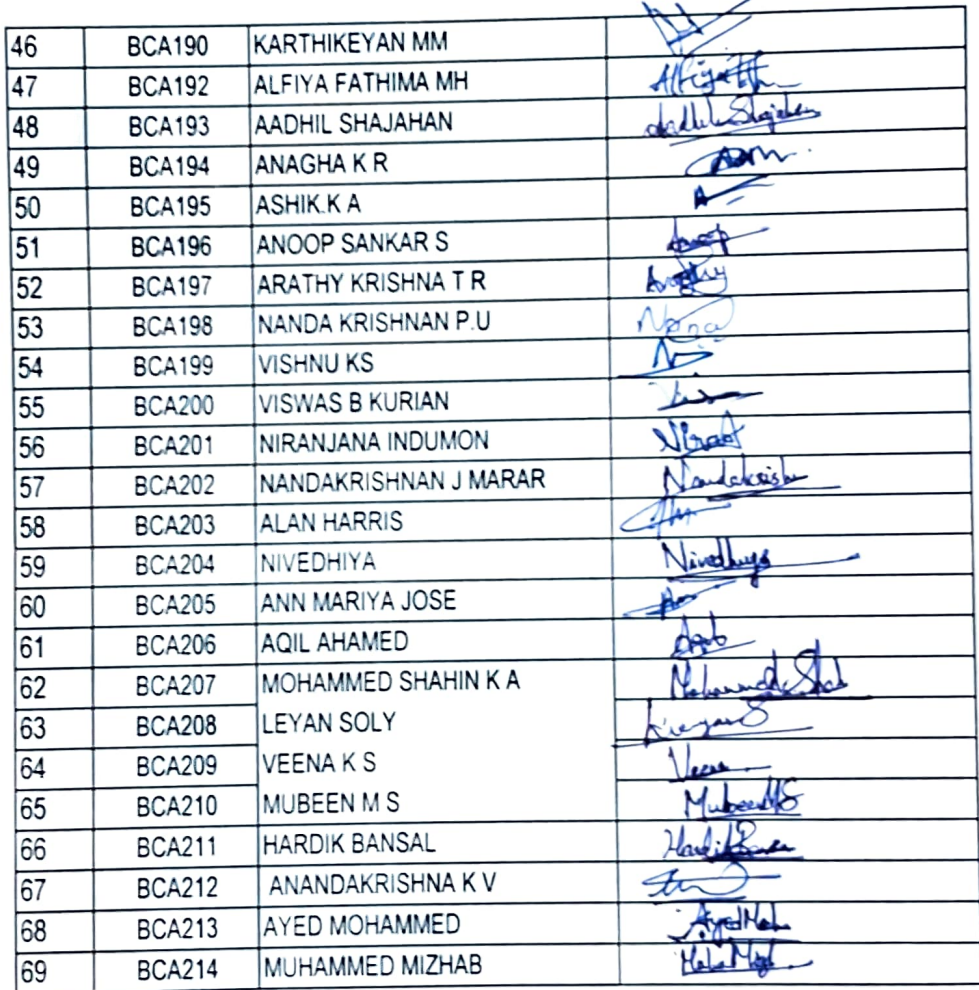 46 BCA190 KARTHIKEYAN MM
47 BCA192 ALFIYA FATHIMA MH
48 BCA193 AADHIL SHAJAHAN Aadhil Shajahan
49 BCA194 ANAGHA K R
50 BCA195 ASHIK.K A
51 BCA196 ANOOP SANKAR S Anoop
52 BCA197 ARATHY KRISHNA T R Arathy
53 BCA198 NANDA KRISHNAN P.U
54 BCA199 VISHNU KS
55 BCA200 VISWAS B KURIAN
56 BCA201 NIRANJANA INDUMON
57 BCA202 NANDAKRISHNAN J MARAR Nandakrishn
58 BCA203 ALAN HARRIS
59 BCA204 NIVEDHIYA Nivedhiya
60 BCA205 ANN MARIYA JOSE
61 BCA206 AQIL AHAMED
62 BCA207 MOHAMMED SHAHIN K A
63 BCA208 LEYAN SOLY
64 BCA209 VEENA K S Veena
65 BCA210 MUBEEN M S Mubeen MS
66 BCA211 HARDIK BANSAL Hardik Bansal
67 BCA212 ANANDAKRISHNA K V
68 BCA213 AYED MOHAMMED
69 BCA214 MUHAMMED MIZHAB